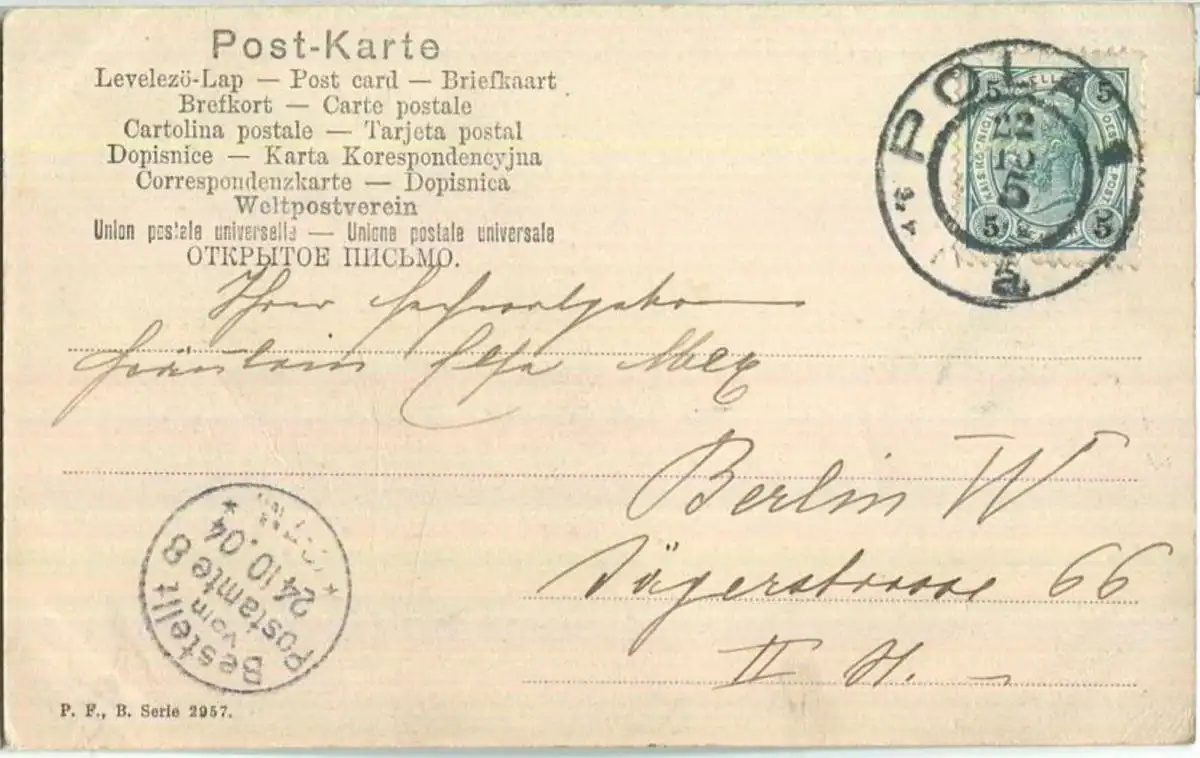 Post-Karte
Levelezö-Lap — Post card — Briefkaart
Brefkort — Carte postale
Cartolina postale — Tarjeta postal
Dopisnice — Karta Korespondencyjna
Correspondenzkarte — Dopisnica
Weltpostverein
Union postale universelle — Unione postale universale
ОТКРЫТОЕ ПИСЬМО.
POLA 1
22
10
5
a
5 5
5 5
Ihrer Hochwolgeboren
Fräulein Elsa
Berlin W
Jägerstrasse 66
II H.
Bestellt
vom
Postamte 8
24 10.04
P. F., B. Serie 2957.